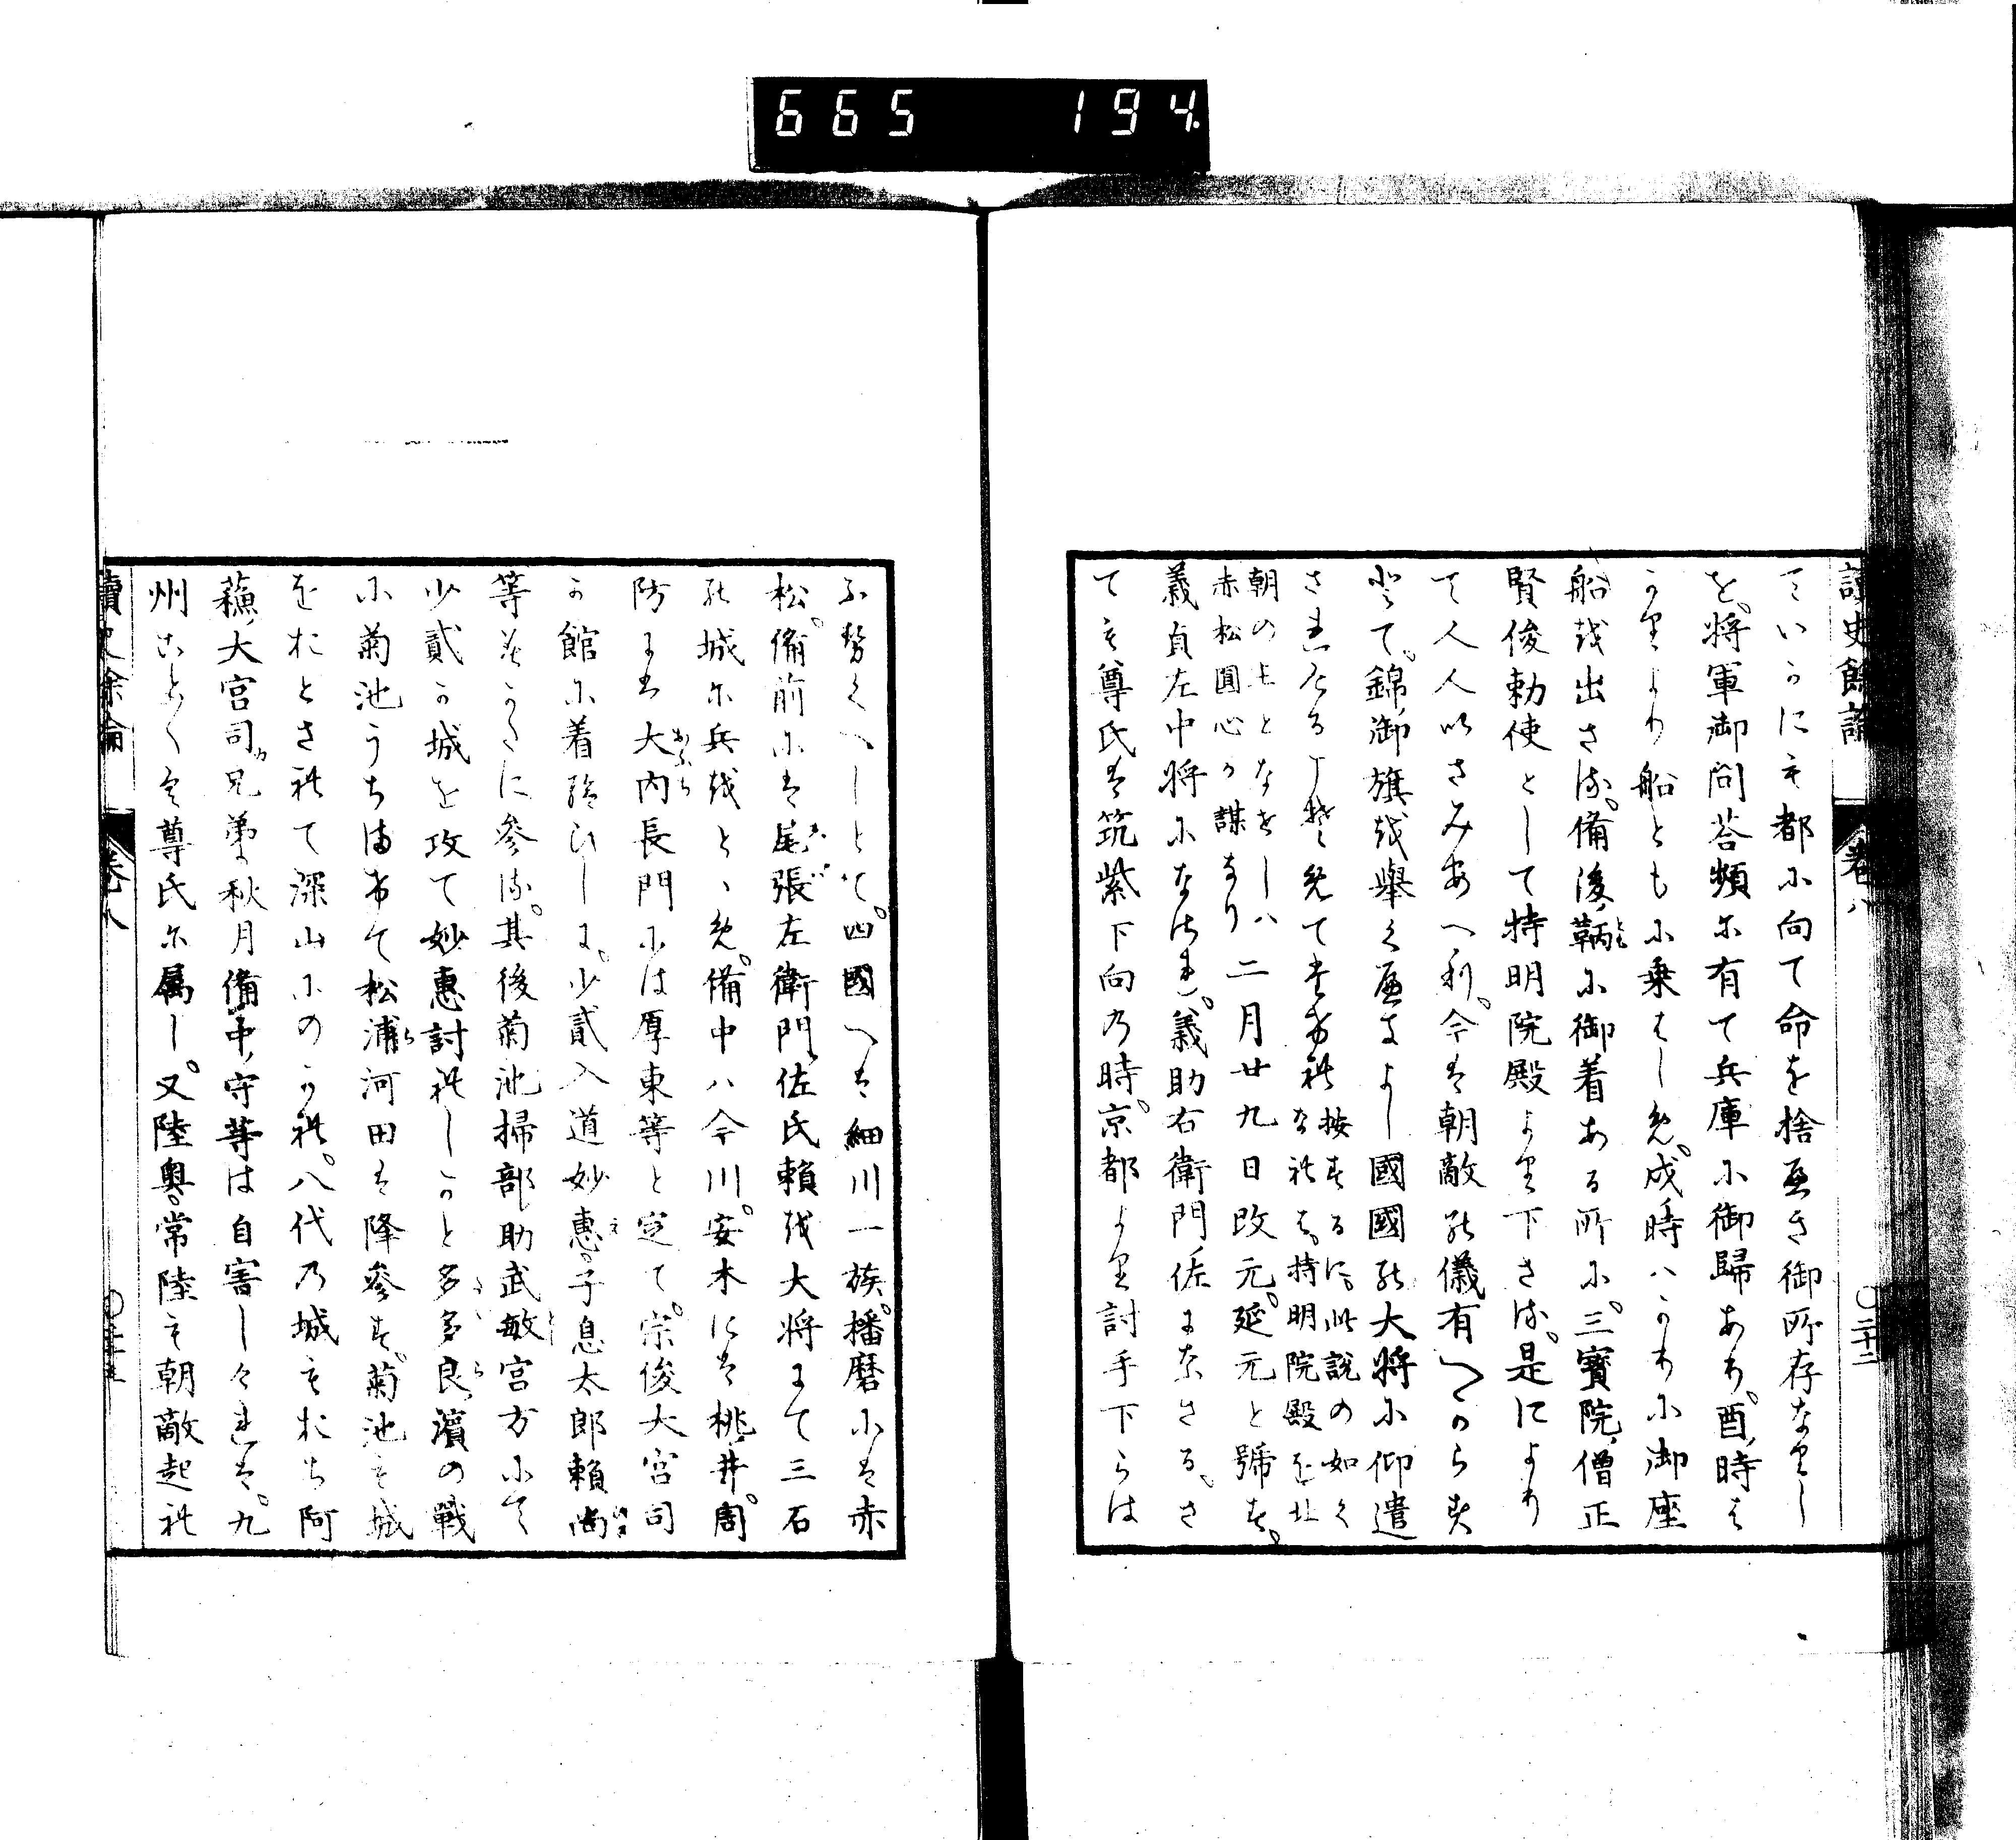 665 194.
讀史餘論 卷八 ○三十二
ていかにも都に向て命を捨へき御所存なりし
を。将軍御問答頻に有て兵庫に御歸あり。酉ノ時は
かりより船ともに乗はしめ。戌ノ時ハかりに御座
船を出さる。備後ノ鞆に御着ある所に。三寳院ノ僧正
賢俊勅使として持明院殿より下さる。是により
て人人いさみあへり。今は朝敵の儀有へからす
とて。錦ノ御旗を舉く庭きよし國國の大将に仰遣
されたるし
按するに。此説の如くなれは。持明院殿を北
朝の主となせしハ赤松圓心か謀なり
二月廿九日改元。延元と號す。
義貞左中将になされ。義助右衛門佐になさる。さ
ても尊氏は筑紫下向の時。京都より討手下らは
ふせくへしとて。四國へは細川一族。播磨には赤
松。備前には尾張左衛門佐氏頼を大将にて三石
の城に兵をとゝめ。備中ハ今川。安木には桃ノ井。周
防には大内長門には厚東等と定て。宗俊大宮司
か館に着給ひしに。少貳入道妙惠。子息太郎頼尚
等むかへに參る。其後菊池掃部助武敏宮方にて
少貳か城を攻て妙惠討れしかと多多良ノ濱の戰
に菊池うちまけて松浦河田は降參す。菊池も城
をおとされて深山にのかれ。八代の城もおち阿
蘓ノ大宮司カ兄弟秋月備中ノ守等は自害しけれは。九
州ことことく尊氏に屬し。又陸奥。常陸も朝敵起れ
讀史餘論 卷八